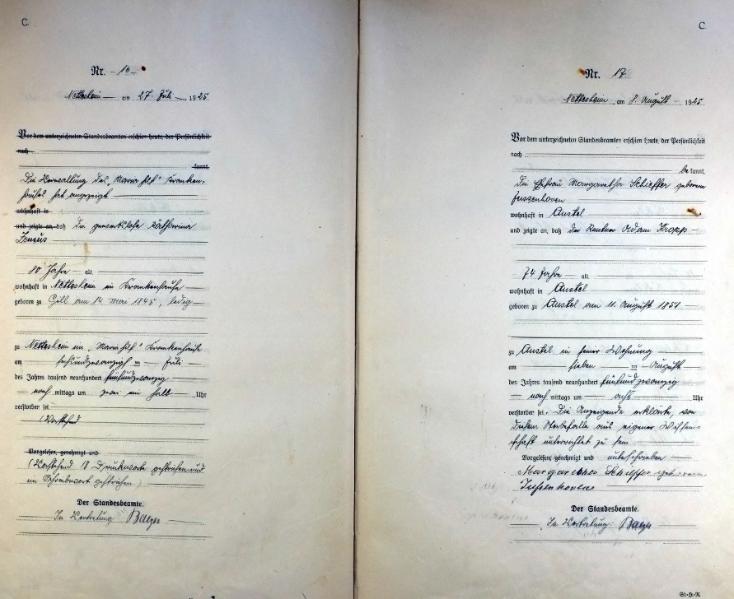 C.
Nr. 16
Nettesheim am 27 Juli 1925
Vor dem unterzeichneten Standesbeamten erschien heute, der Persönlichkeit
nach
kannt,
Die Verwaltung des "Maria Hilf" Kranken-
hauses hat angezeigt
wohnhaft in
und zeigte an, daß die gewerblose Katharina
80 Jahre alt
wohnhaft in Nettesheim im Krankenhause
geboren zu Gill am 14 Mai 1845, ledig
zu Nettesheim im "Maria Hilf" Krankenhause
am sechsundzwanzigsten Juli
des Jahres tausend neunhundert fünfundzwanzig
nach mittags um zwei ein halb Uhr
verstorben sei
Vorgelesen, genehmigt und
(Vorstehend 18 Druckworte gestrichen und
ein Schreibwort gestrichen)
Der Standesbeamte.
In Vertretung
C.
Nr. 17
Nettesheim am 8. August 1925
Vor dem unterzeichneten Standesbeamten erschien heute, der Persönlichkeit
nach
bekannt,
Die Ehefrau Margaretha geborene
wohnhaft in Anstel
und zeigte an, daß der Rentner Adam Kropp
74 Jahre alt
wohnhaft in Anstel
geboren zu Anstel am 11. August 1851
zu Anstel in seiner Wohnung
am sieben August
des Jahres tausend neunhundert fünfundzwanzig
nach mittags um acht Uhr
verstorben sei. Die Anzeigende erklärte, von
diesem Sterbefalle aus eigener Wissen-
schaft unterrichtet zu sein
Vorgelesen, genehmigt und unterschrieben
Margaretha geborene
Der Standesbeamte.
In Vertretung